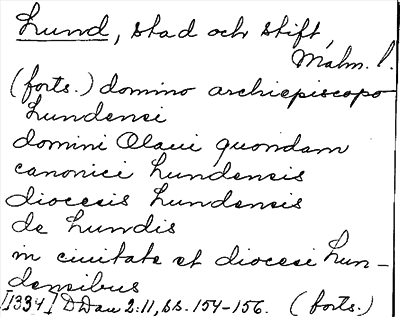 Lund, stad och stift,
Malm. l.
(forts.) domino archiepiscopo
Lundensi
domini Olaui quondam
canonici Lundensis
diocesis Lundensis
de Lundis
in ciuitate et diocesi Lun-
densibus
[1334] DDan 2:11, ss. 154-156. (forts.)